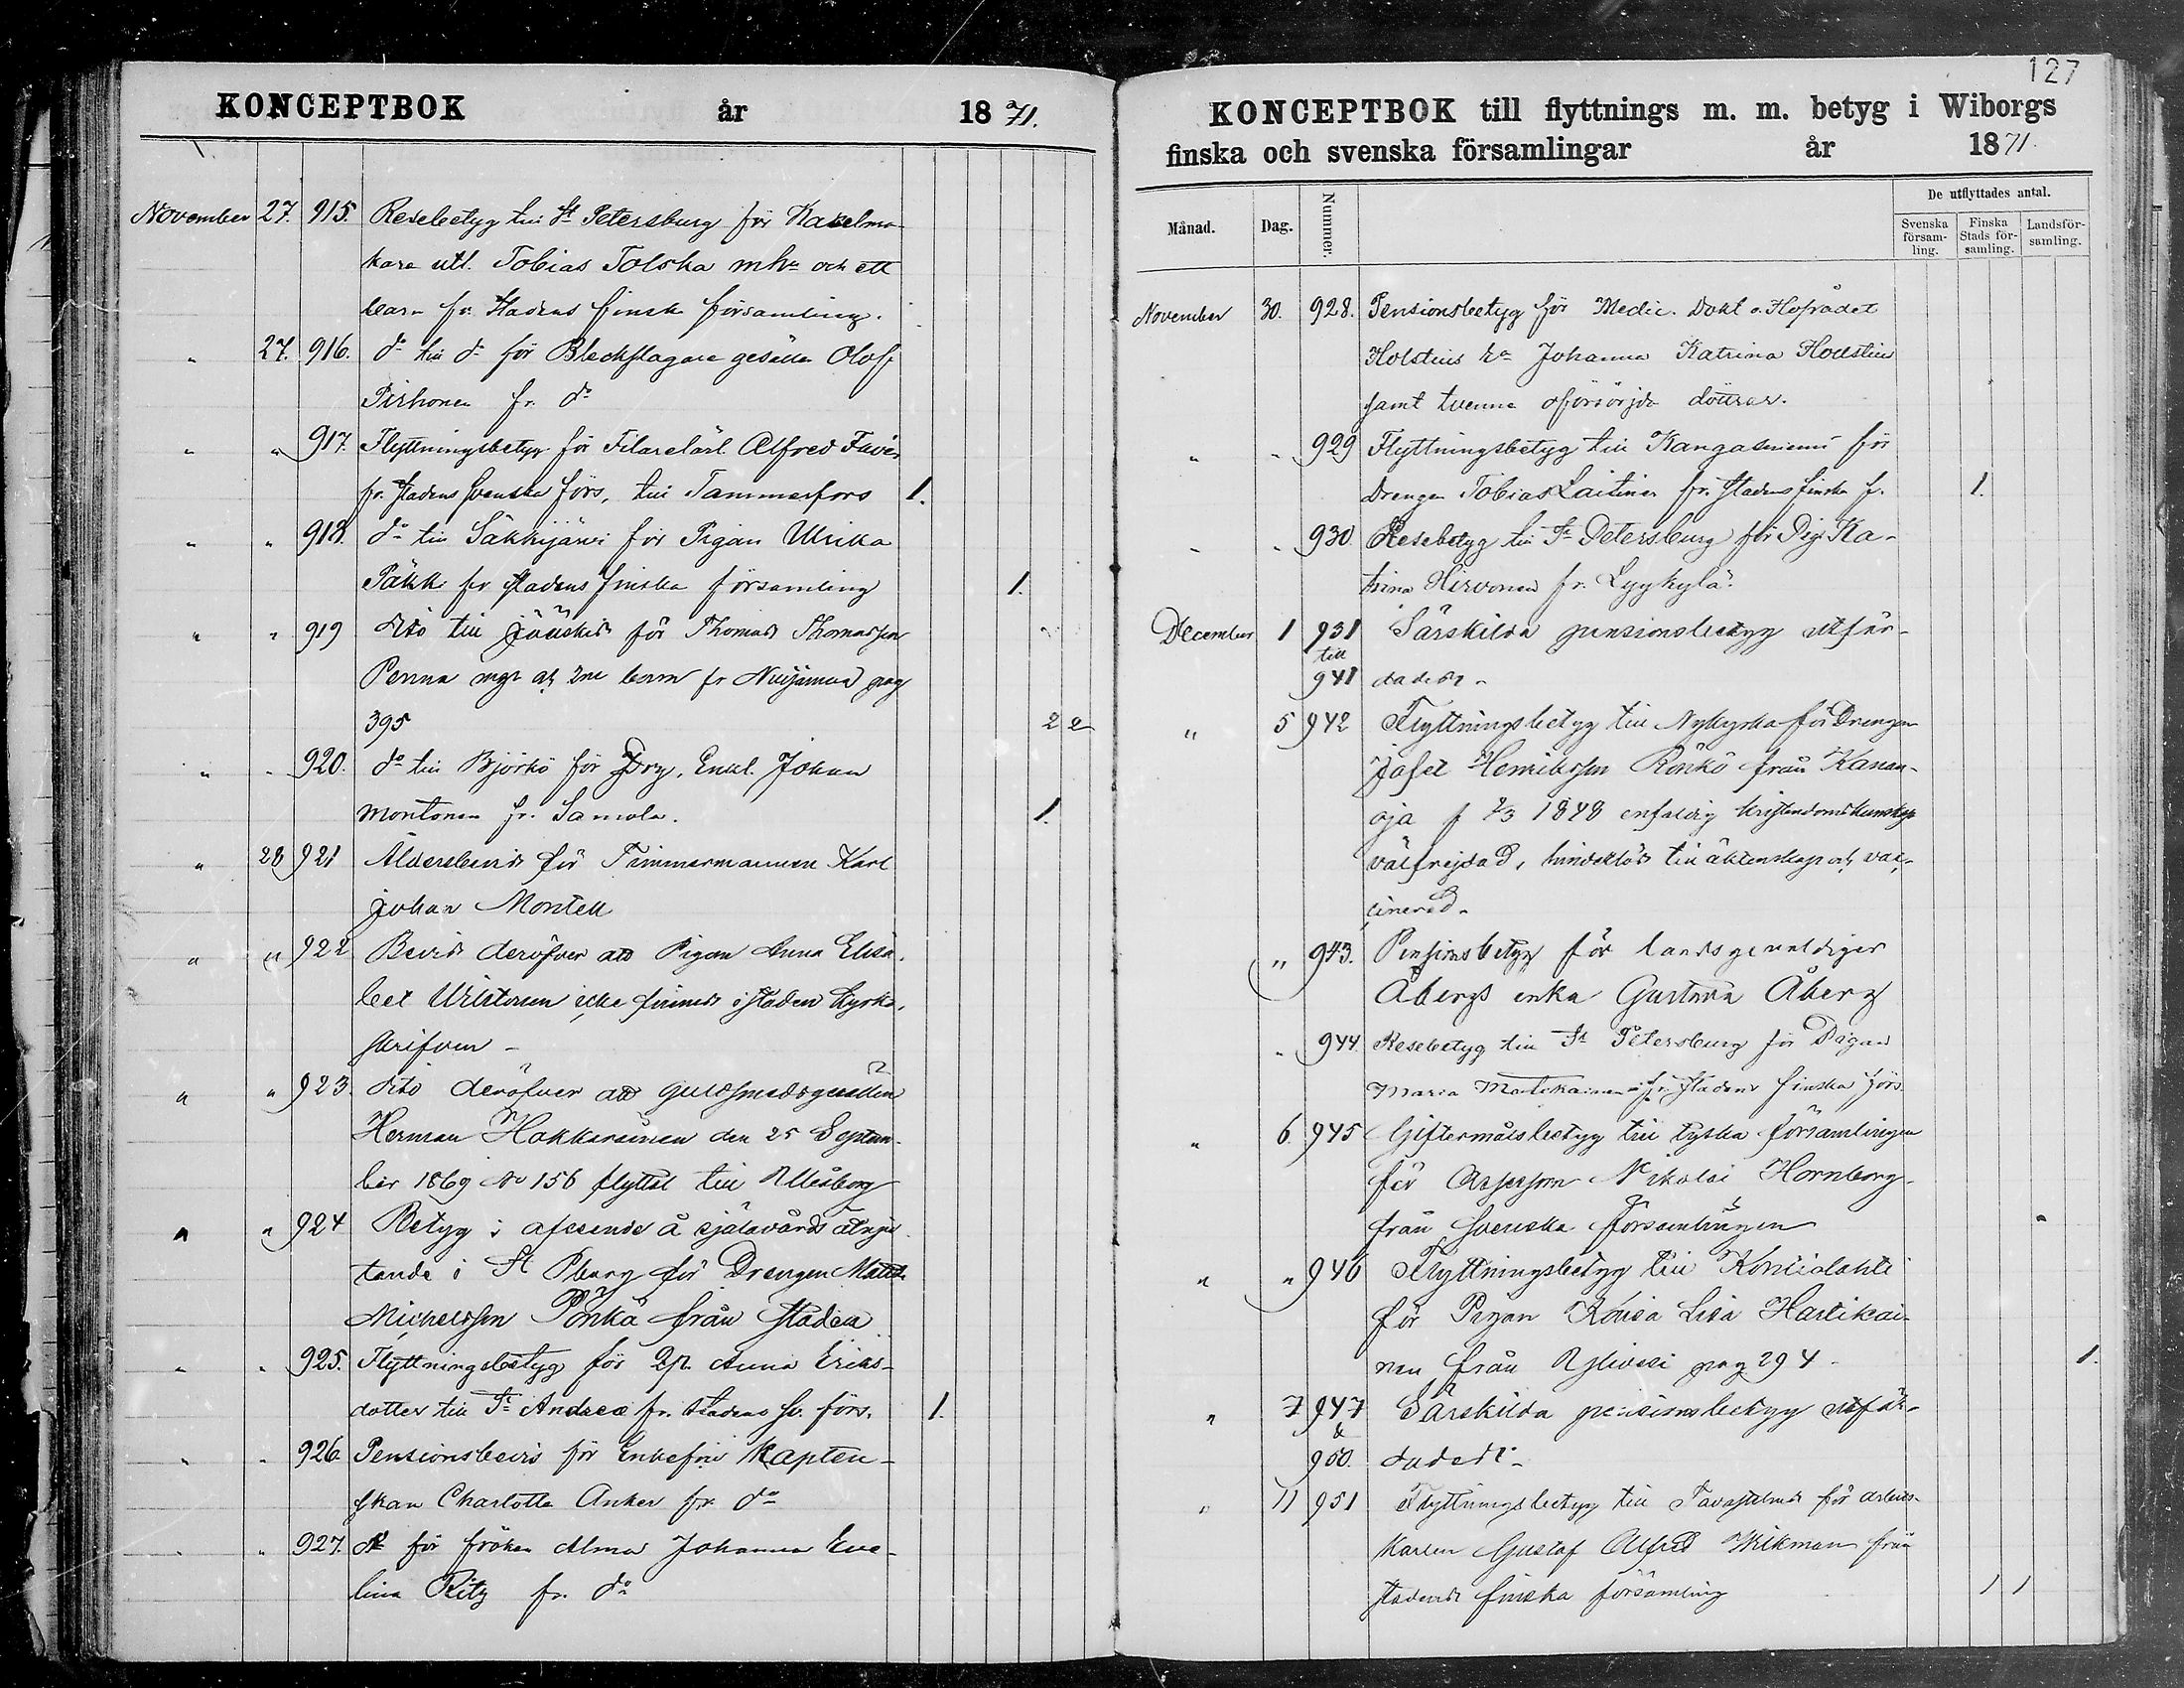 KONCEPTBOK år 1871.
November 27. 915. Resebetyg till St Petersburg för Kakelma-
kare utl. Tobias Tolska mhu och ett
barn fr. Stadens finska församling.
" 27. 916. do till do för Bleckslagare gesällen Olof
Pirhonen fr. do
" " 917. Flyttningsbetyg för Filarelärl. Alfred
fr. stadens svenska förs. till Tammerfors 1.
" " 918. do till Säkkijärvi för Pigan Ulrika
Päkk fr stadens finska församling 1.
" " 919 dito till Jääskis för Thomas Thomasson
Penna och 2ne barn fr Nuijamaa pag
395 2 2
" " 920. do till Björkö för Drg. Enkl. Johan
Montonen fr. Samola. 1.
" 28 921 Åldersbevis för Timmermannen Karl
Johan Montell
" " 922 Bevis deröfver att Pigan Anna Elisa-
bet icke finnes i staden kyrko-
skrifven -
" " 923. dito deröfver att guldsmedsgesällen
Herman Hakkarainen den 25 Septem-
ber 1869 No 156 flyttat till Uleåborg
" " 924 Betyg i afseende å själavårds åtnju-
tande i St Pburg för Drengen Matts
Michelsson Pönkä från staden
" " 925. Flyttningsbetyg för Qp. Anna Eriks-
dotter till St Andreæ fr. stadens sv. förs. 1.
" " 926. Pensionsbevis för Enkefru Kapten-
skan Charlotta Anker fr. do
" " 927. do för fröken Alma Johanna Eve-
lina Ritz fr. do
127
KONCEPTBOK till flyttnings m. m. betyg i Wiborgs
finska och svenska församlingar år 1871.
Månad. Dag. Nummer. De utflyttades antal.
Svenska församling. Finska Stads församling. Landsförsamling.
November 30. 928. Pensionsbetyg för Medic. Dokt o. Hofrådet
Holstius Ea Johanna Katrina Holstius
samt tvenne oförsörjda döttrar.
" " 929 Flyttningsbetyg till Kangasniemi för
Drengen Tobias Laitinen fr. stadens finska f. 1.
" " 930. Resebetyg till St Petersburg för Pig. Ka-
trina Hirvonen fr. Lyykylä.
December 1 931 Särskilda pensionsbetyg utfär-
till
941 dades.
" 5 942 Flyttningsbetyg till Nykyrka för Drengen
Jafet Henriksson Rönkö från Kanan-
oja f 7/3 1848 enfaldig kristendomskunskap
välfrejdad, hinderlös till äktenskap och vac-
cinerad.
" 943. Pensionsbetyg för landsgevaldiger
Åbergs enka Gustava Åberg
" 944. Resebetyg till St Petersburg för Pigan
Maria Martikainen fr. stadens finska förs.
" 6. 945 Giftermålsbetyg till tyska församlingen
för Nikolai Hornborg
från svenska församlingen
" " 946 Flyttningsbetyg till Kontiolahti
för Pigan Lovisa Lisa Hartikai-
nen från Ylivesi pag 294 1.
" 7 947 Särskilda pensionsbetyg utfär-
&
950. dades.
" 11 951 Flyttningsbetyg till Tavastehus för arbets-
karlen Gustaf Alfred Wikman från
stadens finska församling 1 1